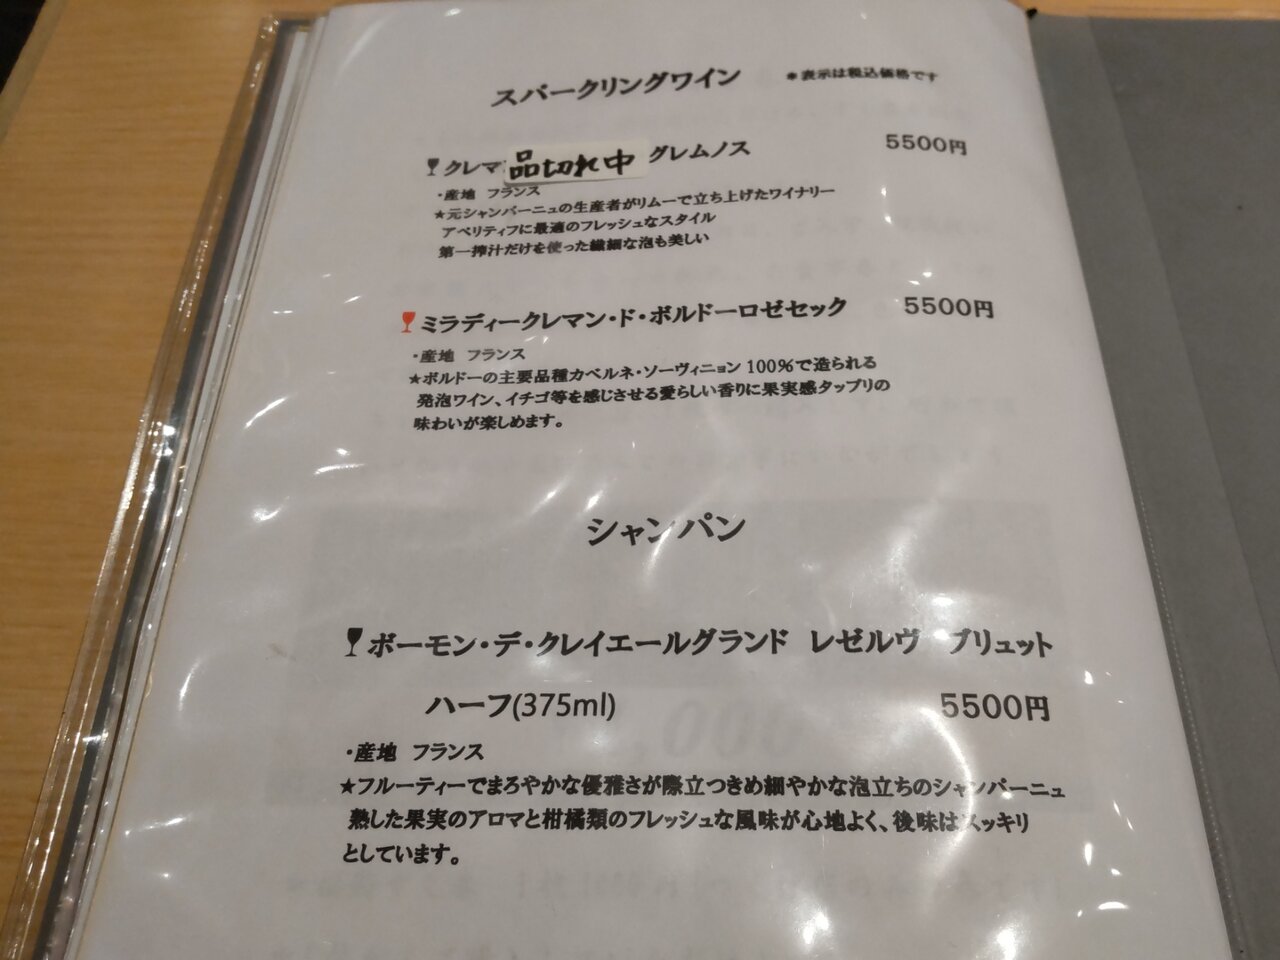 スパークリングワイン ＊表示は税込価格です
クレマ 品切れ中 グレムノス 5500円
・産地 フランス
★元シャンパーニュの生産者がリムーで立ち上げたワイナリー
アペリティフに最適のフレッシュなスタイル
第一搾汁だけを使った繊細な泡も美しい
ミラディークレマン・ド・ボルドーロゼセック 5500円
・産地 フランス
★ボルドーの主要品種カベルネ・ソーヴィニョン100%で造られる
発泡ワイン、イチゴ等を感じさせる愛らしい香りに果実感タップリの
味わいが楽しめます。
シャンパン
ボーモン・デ・クレイエールグランド レゼルヴ ブリュット
ハーフ(375ml) 5500円
・産地 フランス
★フルーティーでまろやかな優雅さが際立つきめ細やかな泡立ちのシャンパーニュ
熟した果実のアロマと柑橘類のフレッシュな風味が心地よく、後味はスッキリ
としています。